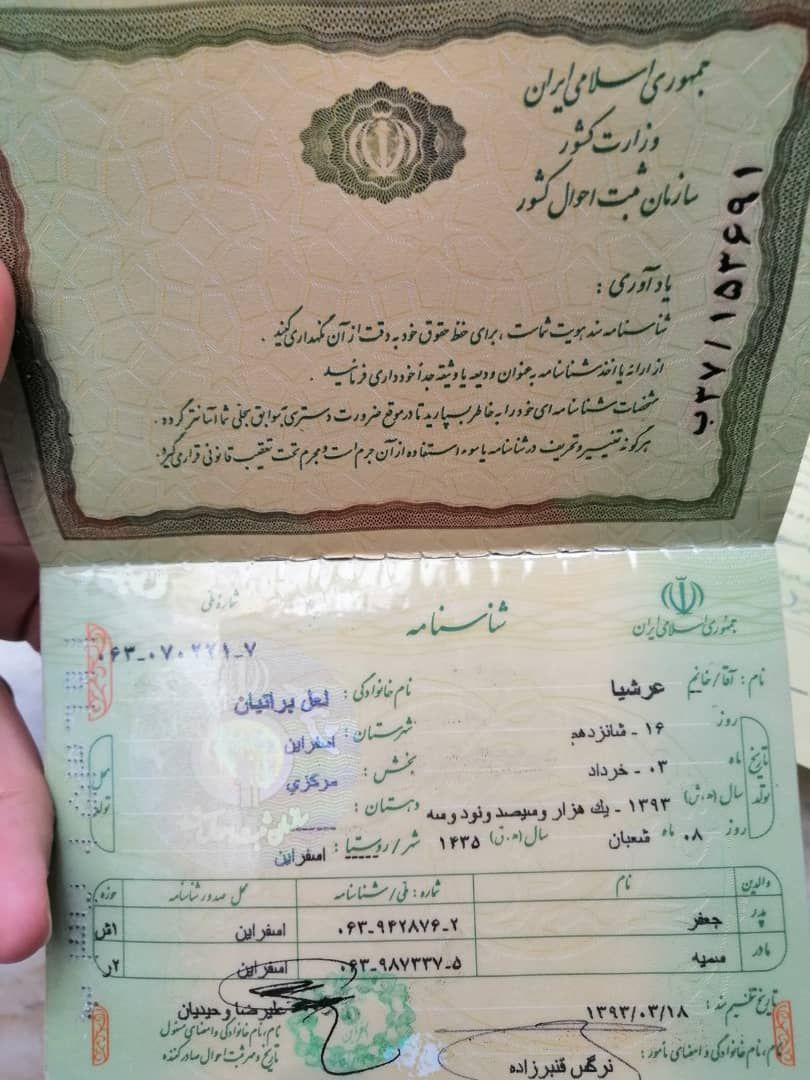 جمهوری اسلامی ایران
وزارت کشور
سازمان ثبت احوال کشور
ب۳۷/۱۵۳۶۹۱
یادآوری :
شناسنامه سند هویت شماست ، برای حفظ حقوق خود به دقت از آن نگهداری کنید .
از ارائه یا اخذ شناسنامه به عنوان ودیعه یا وثیقه جداً خودداری فرمائید .
مشخصات شناسنامه ای خود را به خاطر بسپارید تا در موقع ضرورت دسترسی به سوابق سجلی شما آسانتر گردد .
هرگونه تغییر و تحریف در شناسنامه یا سوء استفاده از آن جرم است و مجرم تحت تعقیب قانونی قرار می گیرد.
جمهوری اسلامی ایران
شناسنامه
شماره ملی
۰۶۳-۰۷۰۲۲۱-۷
نام : آقا/خانم عرشیا نام خانوادگی : لعل براتیان
تاریخ تولد
روز ۱۶ - شانزدهم شهرستان : اسفراین
ماه ۰۳ - خرداد بخش : مرکزي
سال (ه.ش) ۱۳۹۳ - یك هزار و سیصد و نود و سه دهستان : -----
روز ۰۸ ماه شعبان سال (ه.ق) ۱۴۳۵ شهر/روستا : اسفراین
محل تولد
والدین نام شماره : ملی/شناسنامه محل صدور شناسنامه حوزه
پدر جعفر ۰۶۳-۹۴۲۸۷۶-۲ اسفراین ۱ش
مادر سمیه ۰۶۳-۹۸۷۳۳۷-۵ اسفراین ۲ر
تاریخ تنظیم سند : ۱۳۹۳/۰۳/۱۸ علیرضا وحیدیان
نام، نام خانوادگی و امضای مسئول
تاریخ و مهر ثبت احوال صادرکننده
نام، نام خانوادگی و امضای مأمور : نرگس قنبرزاده